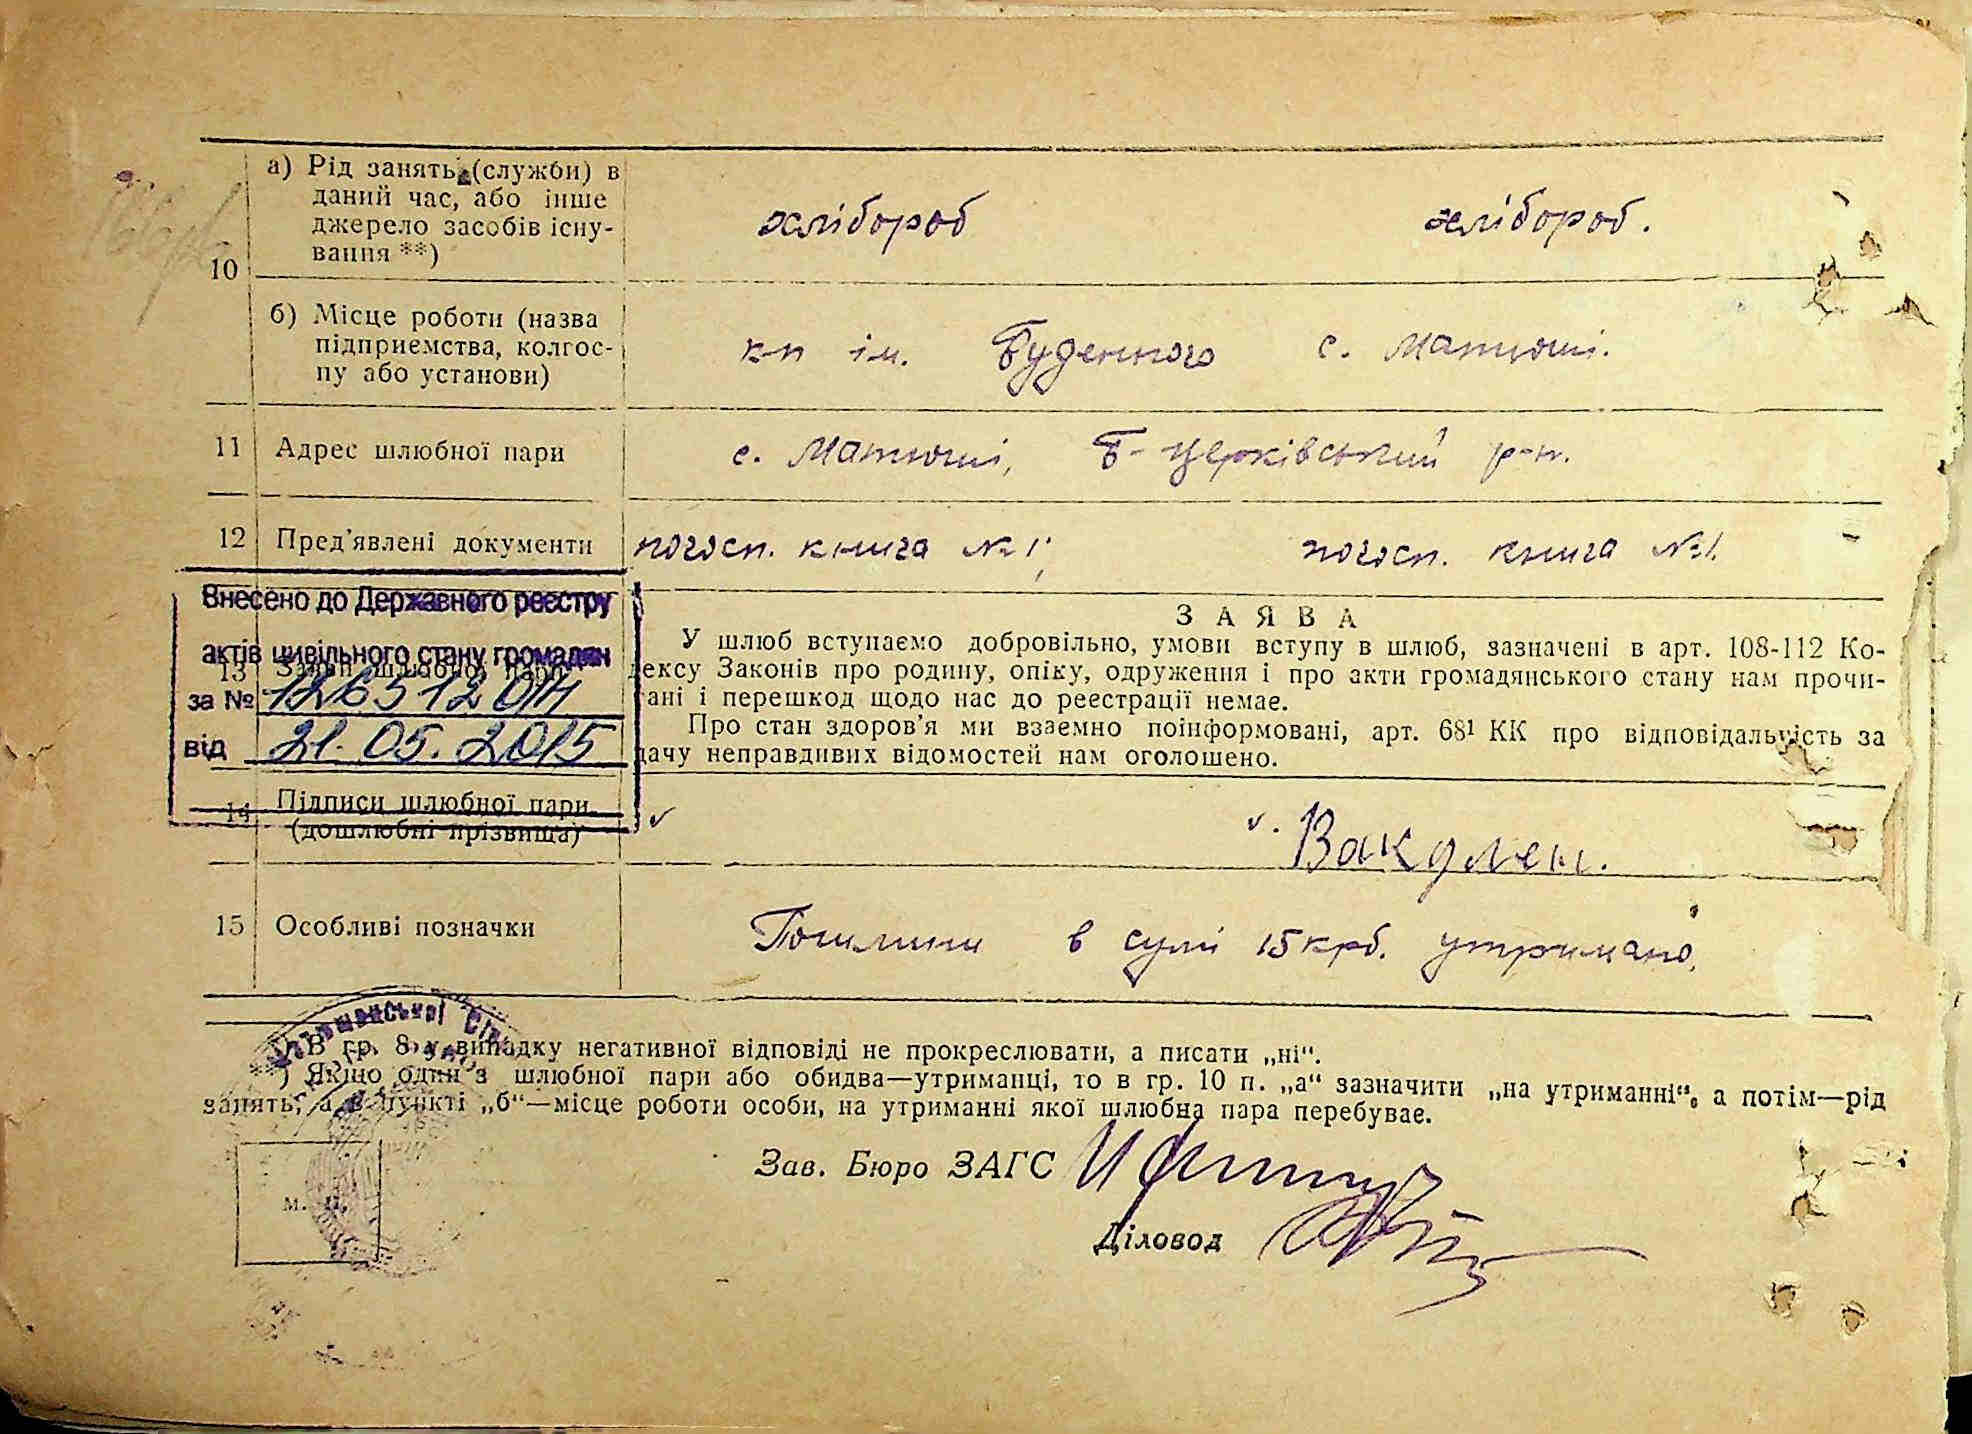 а) Рід занять (служби) в
даний час, або інше
джерело засобів існу-
вання **)
хлібороб хлібороб.
10
б) Місце роботи (назва
підприємства, колгос-
пу або установи)
к-п ім. Буденного с. Матюші.
11 Адрес шлюбної пари
с. Матюші, Б-Церківський р-н.
12 Пред'явлені документи
погосп. книга №1, погосп. книга №1.
Внесено до Державного реєстру
актів цивільного стану громадян
за №
від 21.05.2015
13 Заява шлюбної пари
ЗАЯВА
У шлюб вступаємо добровільно, умови вступу в шлюб, зазначені в арт. 108-112 Ко-
дексу Законів про родину, опіку, одруження і про акти громадянського стану нам прочи-
тані і перешкод щодо нас до реєстрації немає.
Про стан здоров'я ми взаємно поінформовані, арт. 68¹ КК про відповідальність за
дачу неправдивих відомостей нам оголошено.
14 Підписи шлюбної пари
(дошлюбні прізвища)
15 Особливі позначки
Пошлини в сумі 15 крб. утримано.
*) В гр. 8 у випадку негативної відповіді не прокреслювати, а писати „ні“.
**) Якщо один з шлюбної пари або обидва—утриманці, то в гр. 10 п. „а“ зазначити „на утриманні“, а потім—рід
занять, а в пункті „б“—місце роботи особи, на утриманні якої шлюбна пара перебуває.
Зав. Бюро ЗАГС
м. п.
Діловод